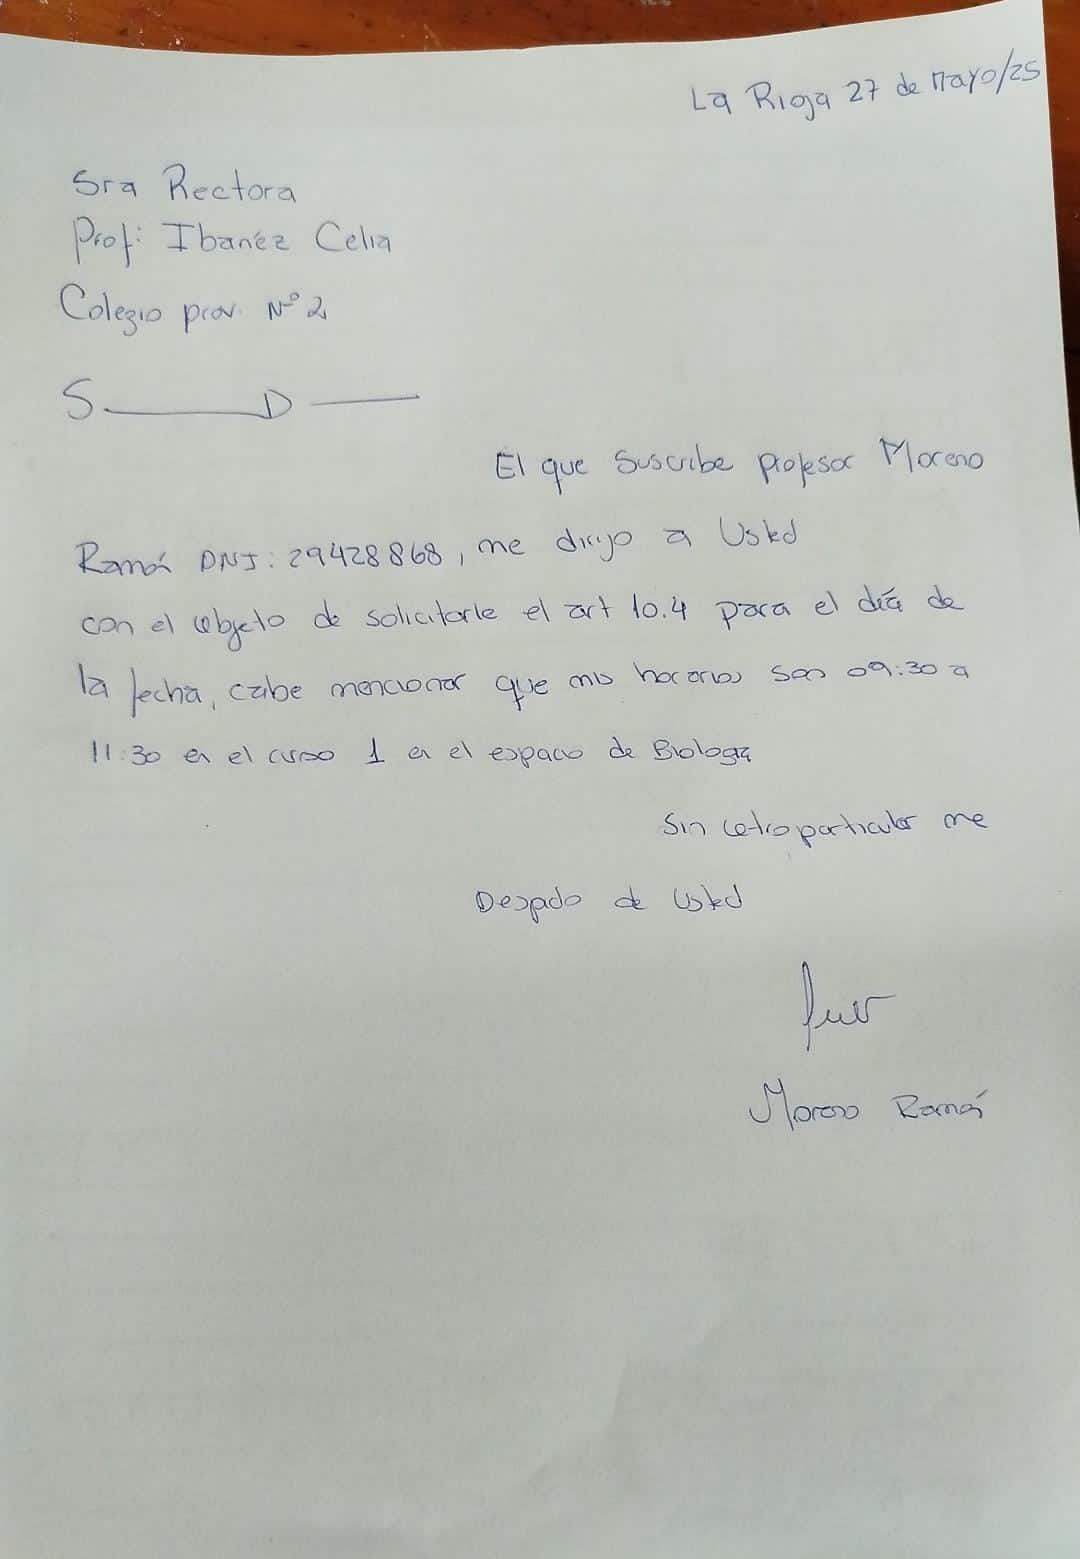 La Rioja 27 de Mayo/25
Sra Rectora
Prof: Ibañez Celia
Colegio prov. Nº 2
S______D ___
El que suscribe profesor Moreno
Ramón DNI: 29428868, me dirijo a Usted
con el objeto de solicitarle el art 10.4 para el día de
la fecha, cabe mencionar que mis horarios son 09:30 a
11:30 en el curso 1 en el espacio de Biología
Sin otro particular me
Despido de Usted
Moreno Ramón